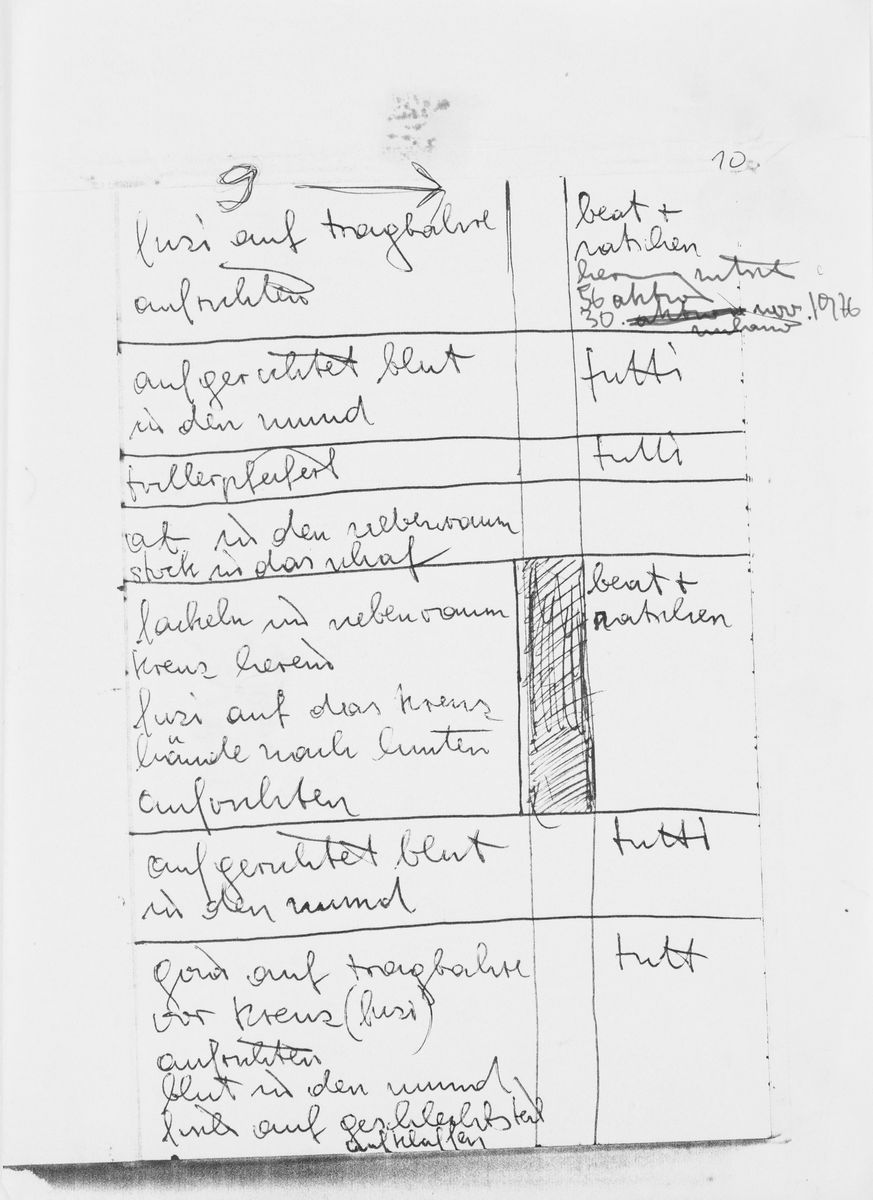 10
9
luzi auf tragbahre
aufrichten
beat +
ratschen
hermann nitsch
56 aktion
30. nov. 1976
milano
aufgerichtet blut
in den mund
tutti
trillerpfeiferl
tutti
at in den nebenraum
stock in das schaf
fackeln in nebenraum
kreuz herein
luzi auf das kreuz
hände nach hinten
aufrichten
beat +
ratschen
aufgerichtet blut
in den mund
tutti
auf tragbahre
vor kreuz (luzi)
aufrichten
blut in den mund
auf geschlechtsteil
aufklatschen
tutti